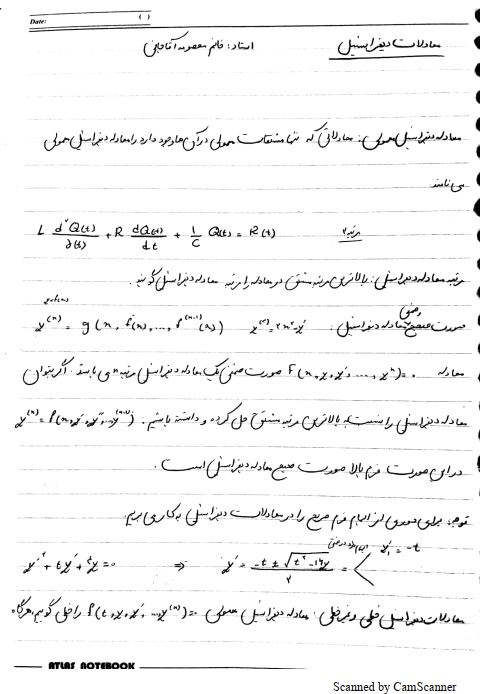 Date: ( )
معادلات دیفرانسیل
استاد: خانم معصومه آقاجانی
معادله دیفرانسیل معمولی: معادلاتی که تنها مشتقات معمولی در آن ها وجود دارد را معادله دیفرانسیل معمولی
می نامند
L d²Q(t)/d(t) + R dQ(t)/dt + 1/C Q(t) = R(t) مرتبه ۲
مرتبه معادله دیفرانسیل: بالاترین مرتبه مشتق در معادله را مرتبه معادله دیفرانسیل گویند.
صورت صریح معادله دیفرانسیل: y⁽ⁿ⁾ = g(x, f(x), ..., f⁽ⁿ⁻¹⁾(x))
معادله F(x, y, y', ..., yⁿ) = 0 صورت ضمنی یک معادله دیفرانسیل مرتبه n می باشد. اگر بتوان
معادله دیفرانسیل را نسبت به بالاترین مرتبه مشتق حل کرده و داشته باشیم: y⁽ⁿ⁾ = f(x, y, y', y'', ..., y⁽ⁿ⁻¹⁾)
در این صورت فرم بالا صورت صریح معادله دیفرانسیل است.
توجه: برای دوری از ابهام فرم صریح را در معادلات دیفرانسیل به کار می بریم.
y'² + ty' + 4y = 0 ⇒ y' = (-t ± √(t² - 16y))/2 =
معادلات دیفرانسیل خطی و غیرخطی: معادله دیفرانسیل معمولی f(t, y, y', ..., y⁽ⁿ⁾) = 0 را خطی گوییم هرگاه
ATLAS NOTEBOOK
Scanned by CamScanner